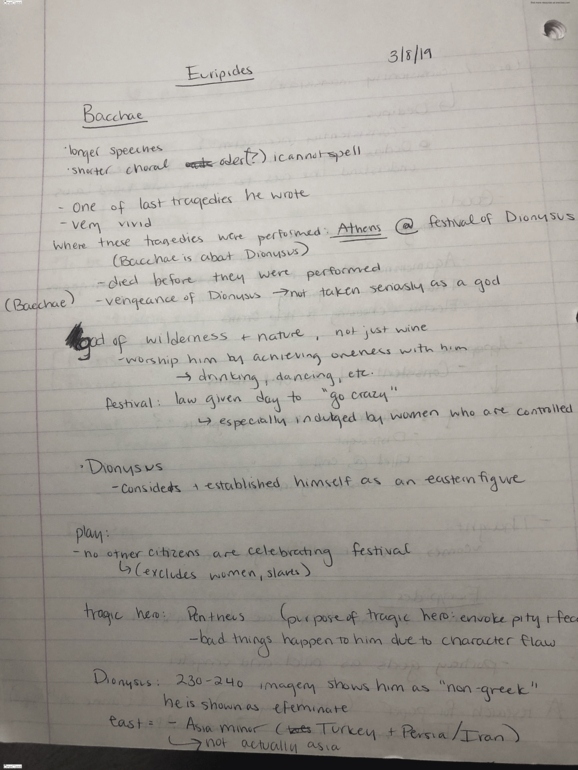 3/8/19
Euripides
Bacchae
·longer speeches
·shorter choral odes(?) i cannot spell
- one of last tragedies he wrote
- very vivid
where these tragedies were performed: Athens @ festival of Dionysus
(Bacchae is about Dionysus)
- died before they were performed
(Bacchae) - vengeance of Dionysus → not taken seriously as a god
god of wilderness + nature, not just wine
- worship him by achieving oneness with him
→ drinking, dancing, etc.
festival: law given day to "go crazy"
↳ especially indulged by women who are controlled
· Dionysus
- considers + established himself as an eastern figure
play:
- no other citizens are celebrating festival
↳ (excludes women, slaves)
tragic hero: Pentheus (purpose of tragic hero: envoke pity + fear
- bad things happen to him due to character flaw
Dionysis: 230-240 imagery shows him as "non-greek"
he is shown as efeminate
east = - Asia minor (Turkey + Persia/Iran)
↳ not actually asia